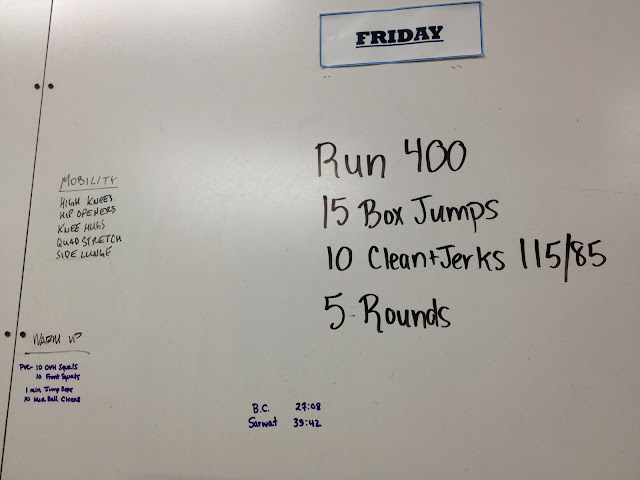 FRIDAY
Run 400
15 Box Jumps
10 Clean+Jerks 115/85
5 Rounds
MOBILITY
HIGH KNEES
HIP OPENERS
KNEE HUGS
QUAD STRETCH
SIDE LUNGE
WARM UP
PVC 10 OVH Squats
10 Front Squats
1 min Jump Rope
10 Med Ball Cleans
B.C. 27:08
Sarwat 39:42